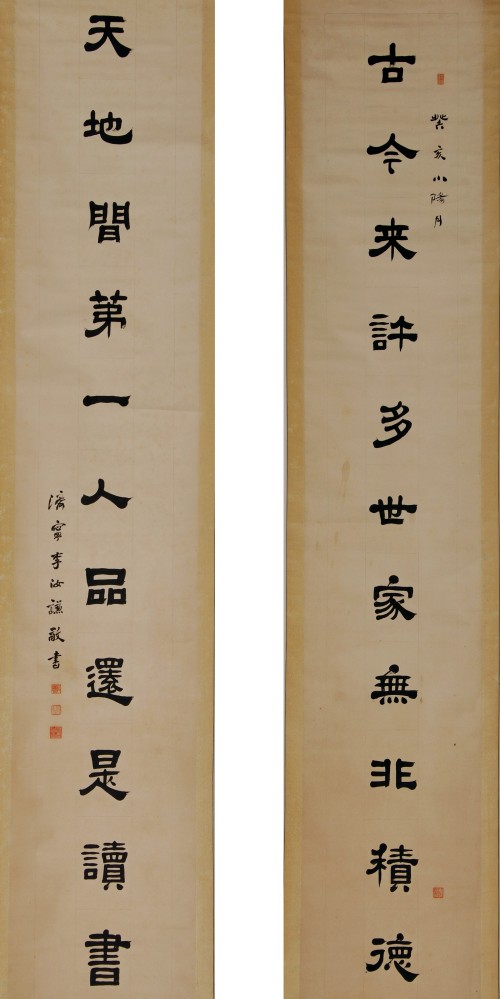 古今来許多世家無非積德
癸亥小陽月
天地間第一人品還是讀書
濟寧李汝謙敬書